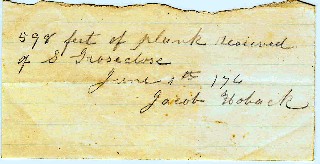 598 feet of plank recieved
of S Groseclose
June 4th 176
Jacob Hoback